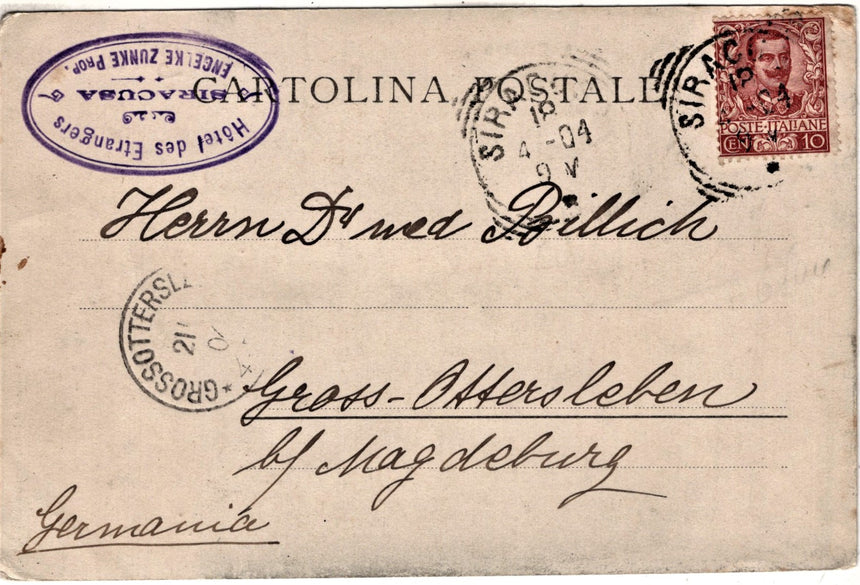 Hôtel des Etrangers
SIRACUSA
ENGELKE ZUNKE PROP.
CARTOLINA POSTALE
SIRAC
18
4 -04
9 V
SIRAC
18
4 -04
POSTE·ITALIANE
CEN 10
Herrn Dr med Billich
GROSSOTTERSLE
21
Gross-Ottersleben
b/ Magdeburg
Germania